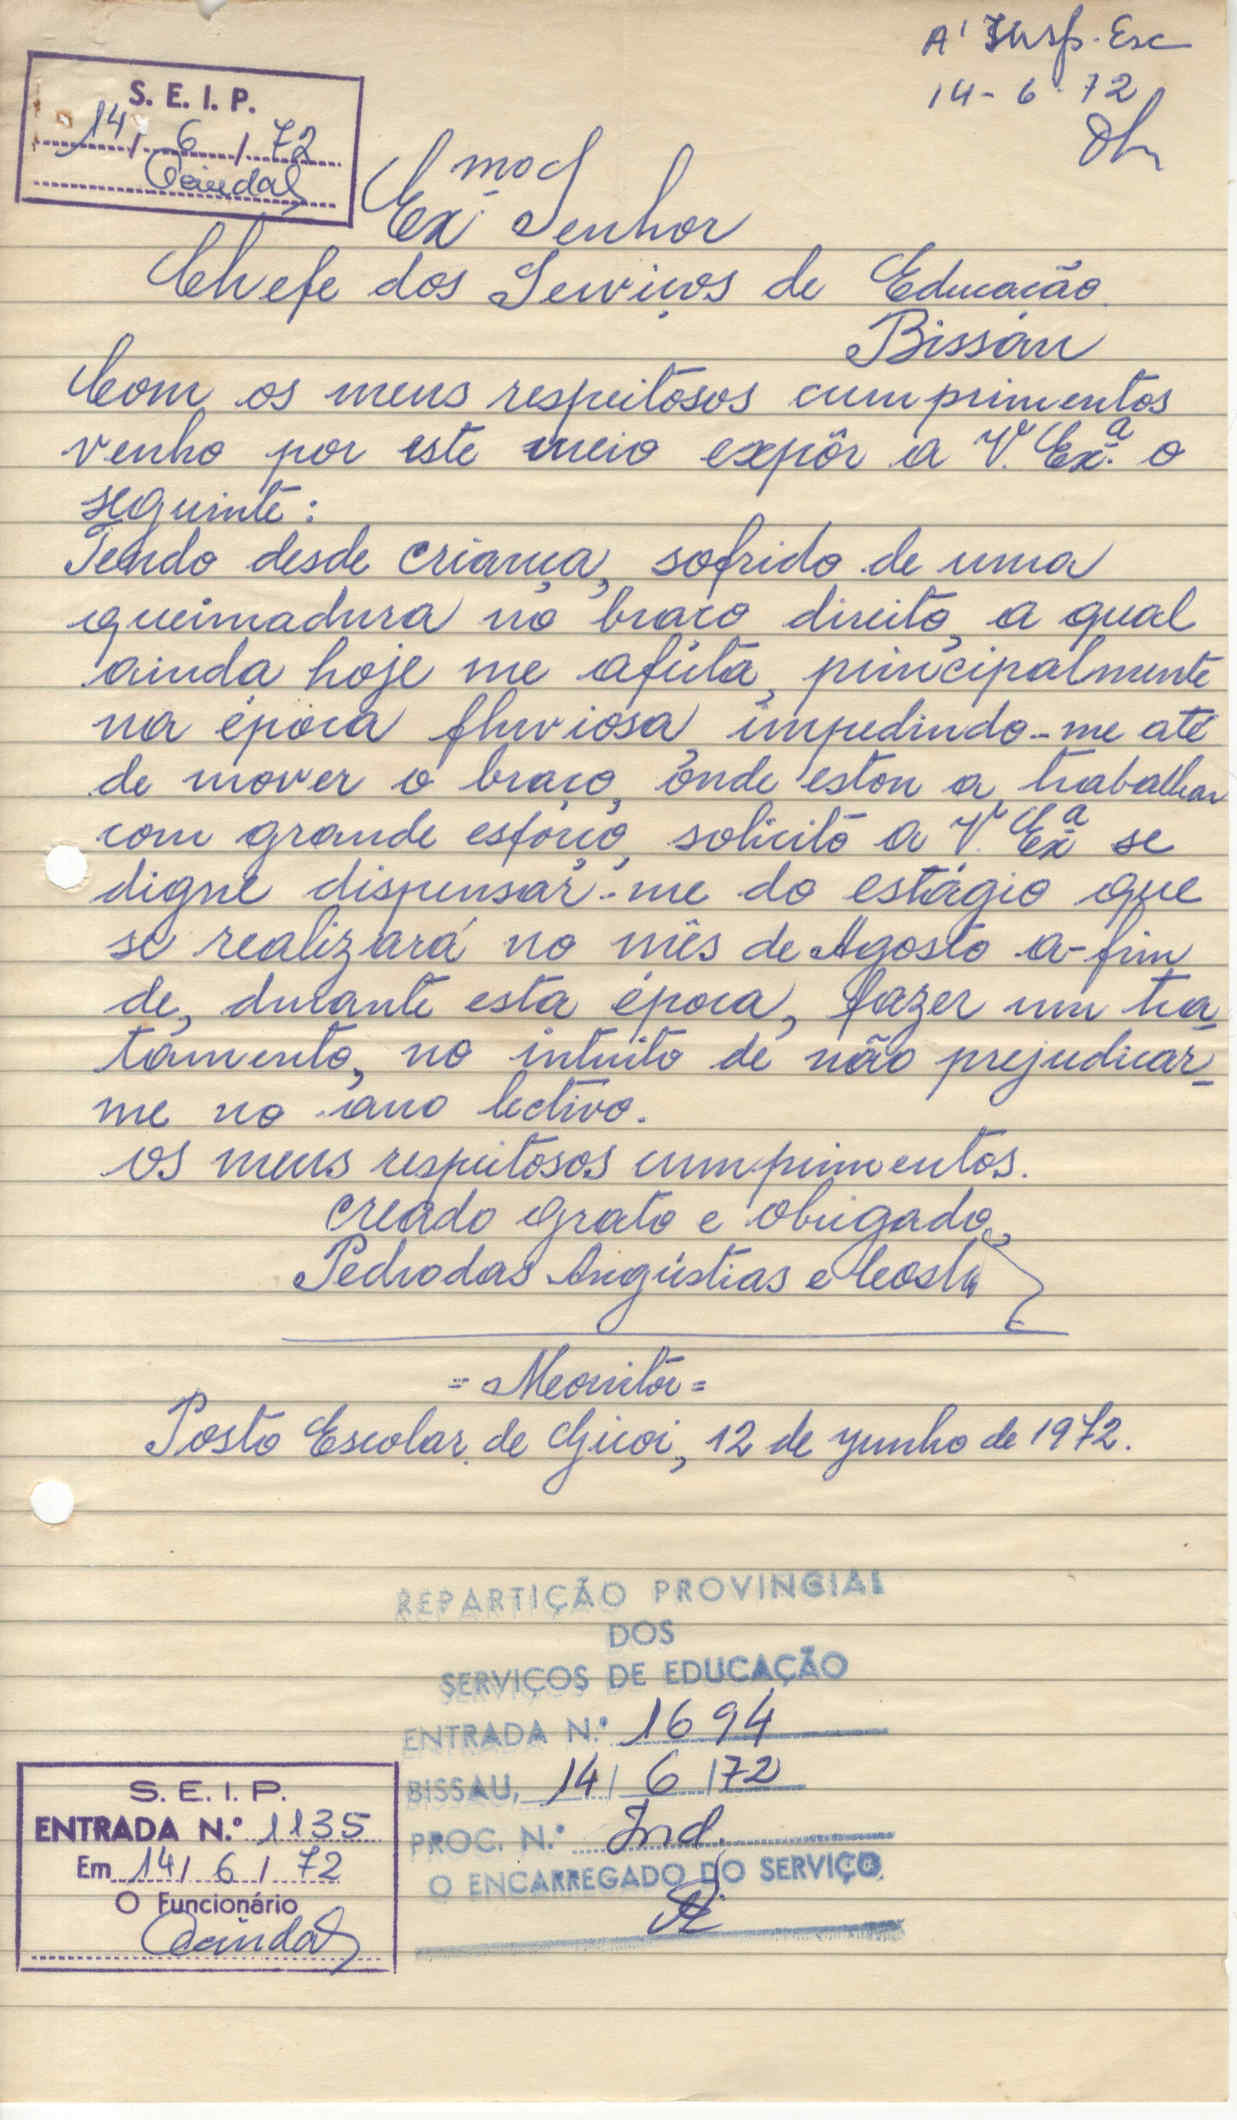 A' Insp. Esc
14-6-72
S. E. I. P.
14/6/72
Ex.mo Senhor
Chefe dos Serviços de Educação
Bissau
Com os meus respeitosos cumprimentos
venho por este meio expôr a V. Ex.a o
seguinte:
Tendo desde criança, sofrido de uma
queimadura no braço direito, a qual
ainda hoje me afeita, principalmente
na época fluviosa, impedindo-me até
de mover o braço, onde estou a trabalhar
com grande esforço, solicito a V. Exa se
digne dispensar-me do estágio que
se realizará no mês de Agosto a-fim
de, durante esta época, fazer um tra_
tamento, no intuito de não prejudicar_
me no ano lectivo.
Os meus respeitosos cumprimentos.
creado grato e obrigado,
Pedro das Angústias e Costa
= Monitor =
Posto Escolar de, 12 de junho de 1972.
REPARTIÇÃO PROVINCIAL
DOS
SERVIÇOS DE EDUCAÇÃO
ENTRADA N.º 1694
BISSAU, 14/6/72
PROC. N.º Ind.
O ENCARREGADO DO SERVIÇO
S. E. I. P.
ENTRADA N.º 1135
Em 14/6/72
O Funcionário